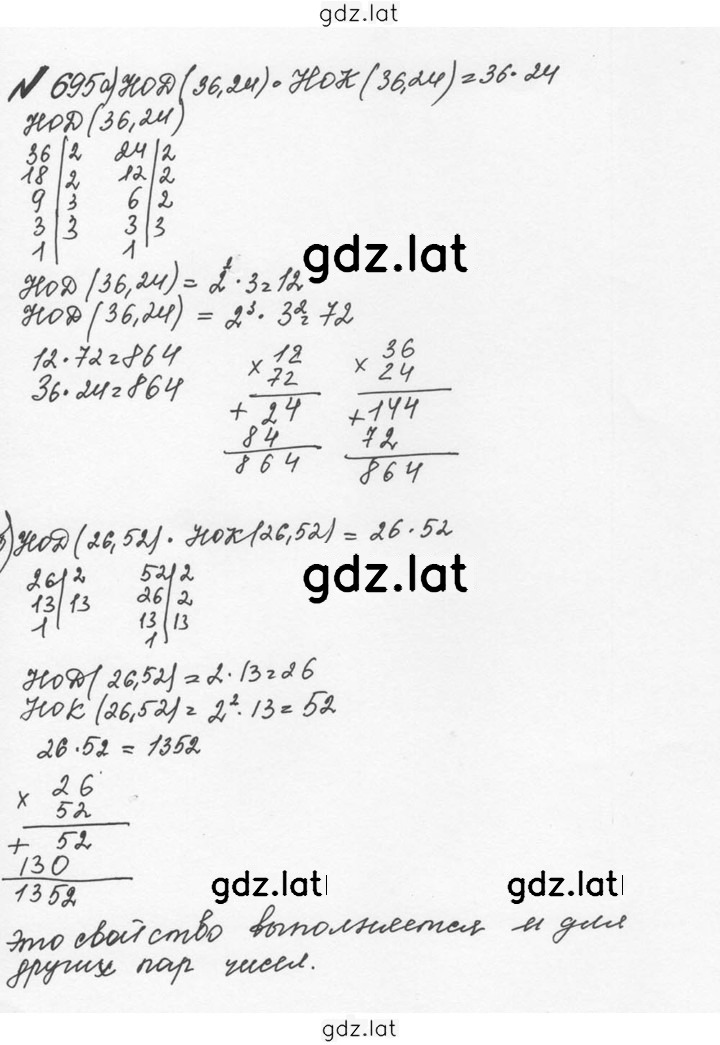 gdz.lat
№ 695 а) НОД (36,24) · НОК (36,24) = 36 · 24
НОД (36,24)
36 | 2   24 | 2
18 | 2   12 | 2
9 | 3   6 | 2
3 | 3   3 | 3
1 |   1
gdz.lat
НОД (36,24) = 2² · 3 = 12
НОД (36,24) = 2³ · 3² = 72
12 · 72 = 864
36 · 24 = 864
× 12   × 36
72   24
+ 24   + 144
84   72
864   864
б) НОД (26,52) · НОК (26,52) = 26 · 52
26 | 2   52 | 2
13 | 13   26 | 2
1 |   13 | 13
1
gdz.lat
НОД (26,52) = 2 · 13 = 26
НОК (26,52) = 2² · 13 = 52
26 · 52 = 1352
× 26
52
+ 52
130
1352
gdz.lat   gdz.lat
это свойство выполняется и для
других пар чисел.
gdz.lat